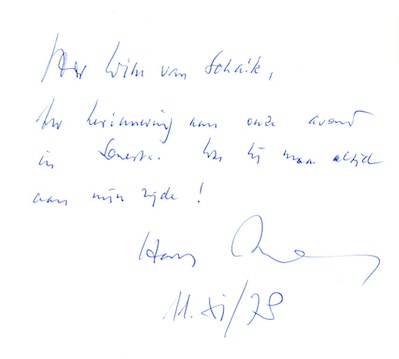 Wim van Schaik,
ter herinnering aan onze avond
in Sonesta. maar altijd
aan mijn zijde!
Hans
11.XI/78